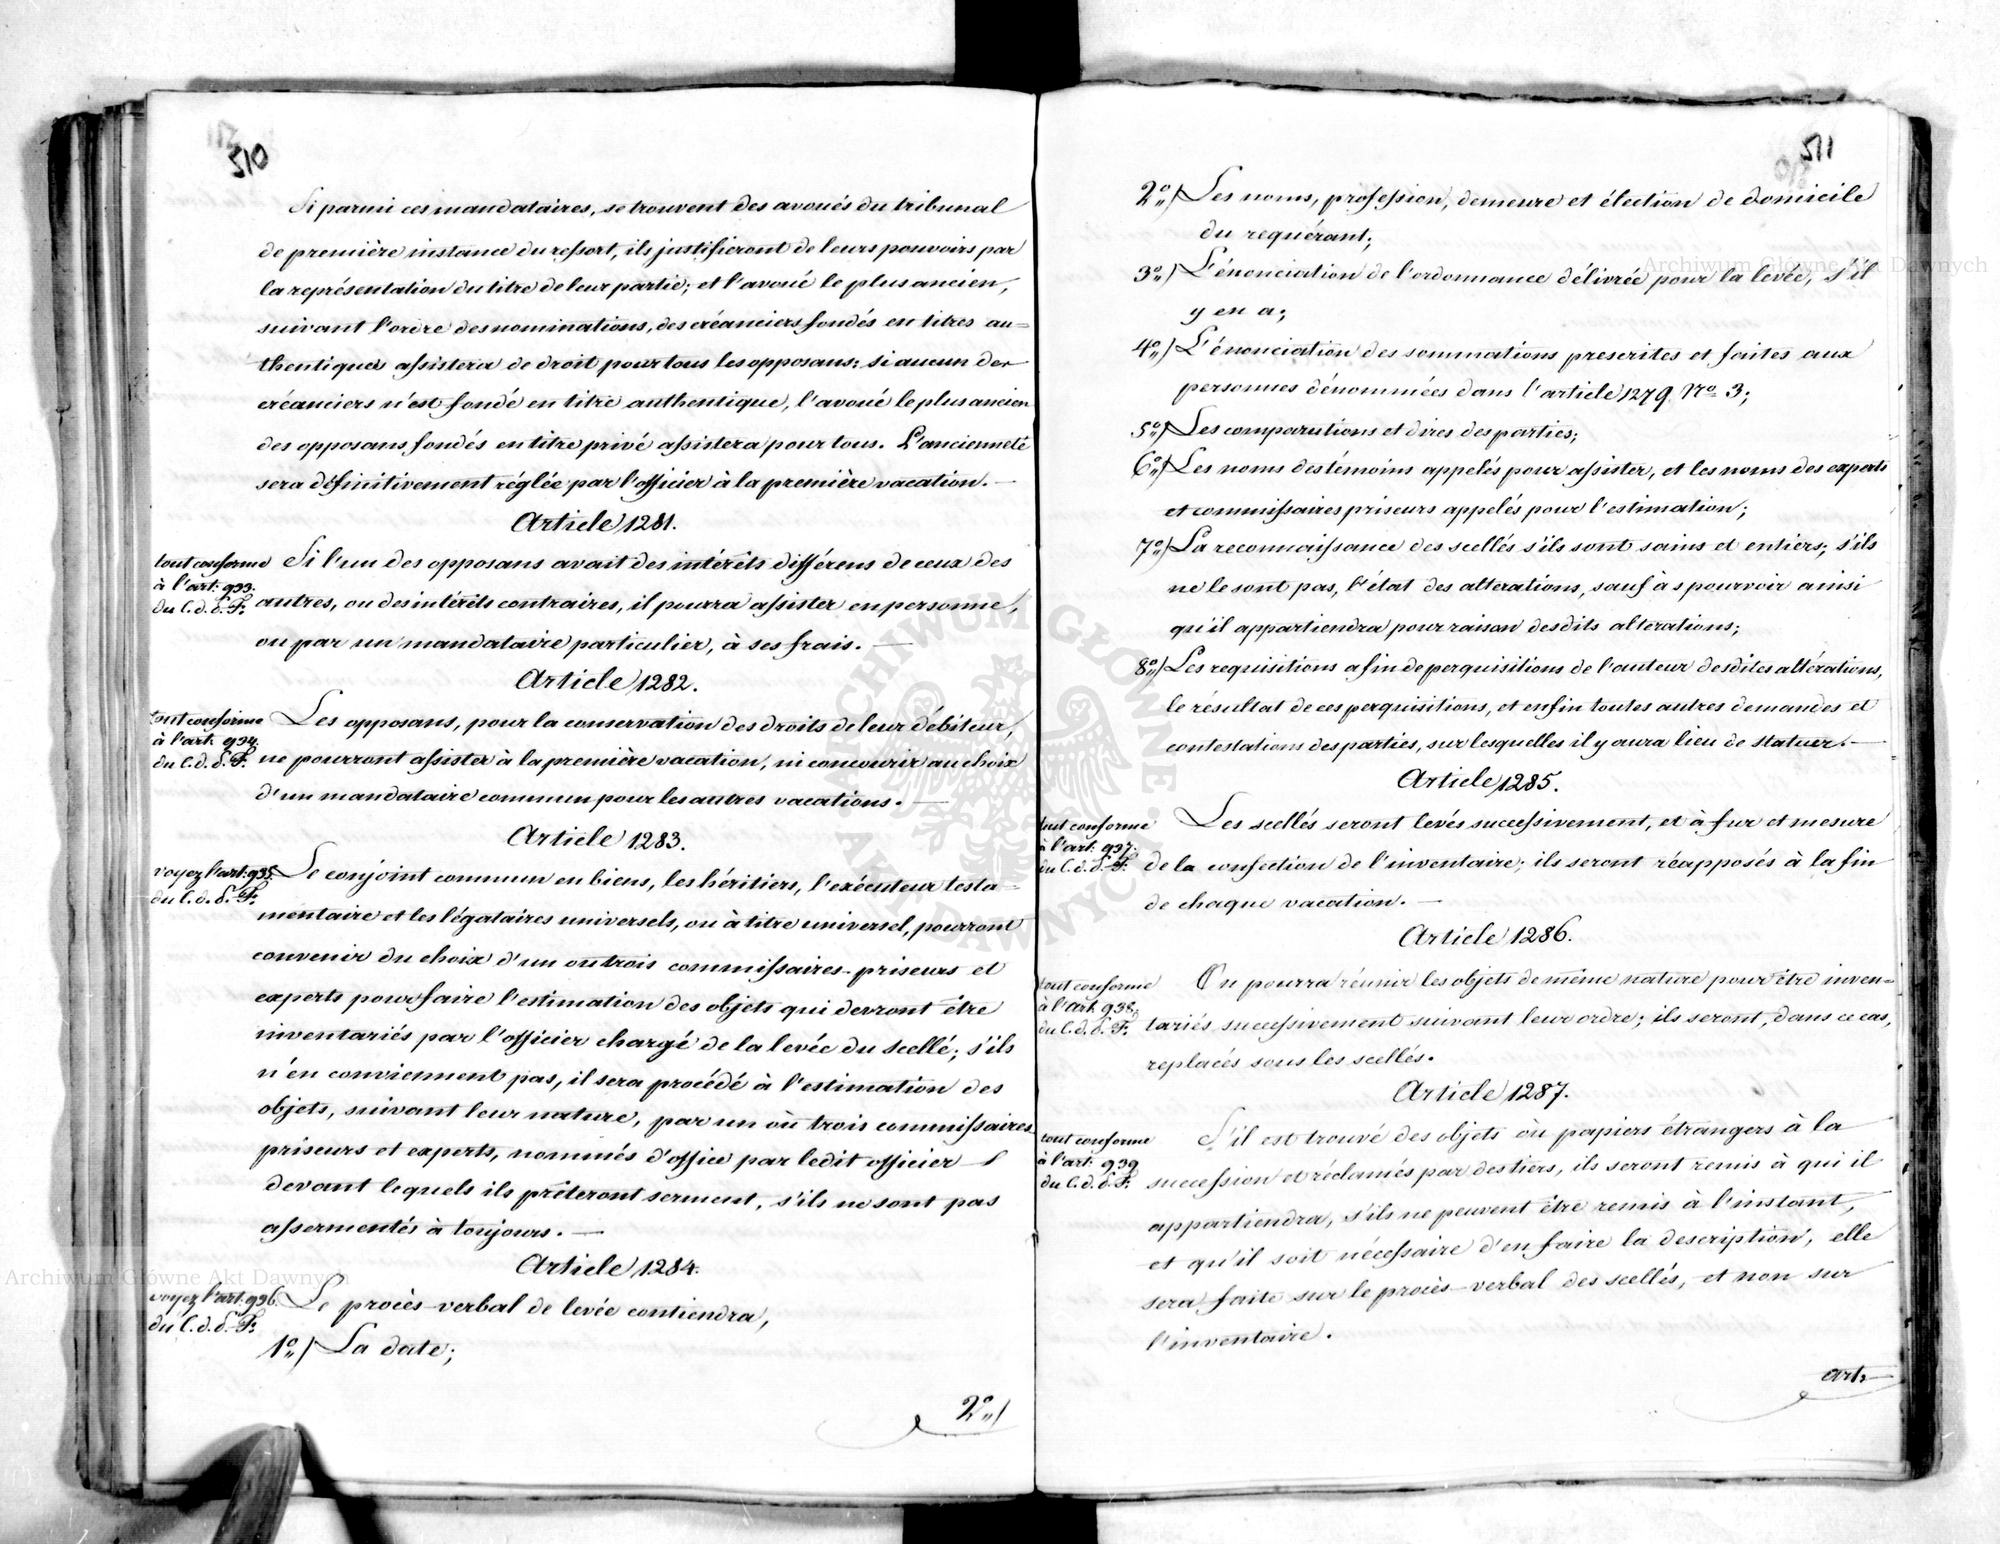 510
Si parmi ces mandataires, se trouvent des avoués du tribunal
de première instance du ressort, ils justifieront de leurs pouvoirs par
la représentation du titre de leur partie; et l'avoué le plus ancien,
suivant l'ordre des nominations, des créanciers fondés en titres au=
thentiques assistera de droit pour tous les opposans: si aucun des
créanciers n'est fondé en titre authentique, l'avoué le plus ancien
des opposans fondés en titre privé assistera pour tous. L'ancienneté
sera définitivement réglée par l'officier à la première vacation. —
Article 1281.
tout conforme
à l'art: 933.
du C. d. d. F.
Si l'un des opposans avait des intérêts différens de ceux des
autres, ou des intérêts contraires, il pourra assister en personne,
ou par un mandataire particulier, à ses frais. —
Article 1282.
tout conforme
à l'art: 934.
du C. d. d. F.
Les opposans, pour la conservation des droits de leur débiteur,
ne pourront assister à la première vacation, ni concourir au choix
d'un mandataire commun pour les autres vacations. —
Article 1283.
voyez l'art: 935.
du C. d. d. F.
Le conjoint commun en biens, les héritiers, l'exécuteur testa=
mentaire et les légataires universels, ou à titre universel, pourront
convenir du choix d'un ou trois commissaires-priseurs et
experts pour faire l'estimation des objets qui devront être
inventariés par l'officier chargé de la levée du scellé; s'ils
n'en conviennent pas, il sera procédé à l'estimation des
objets, suivant leur nature, par un où trois commissaires
priseurs et experts, nommés d'office par ledit officier
devant lequels ils prêteront serment, s'ils ne sont pas
assermentés à toujours. —
Article 1284.
voyez l'art: 936.
du C. d. d. F.
Le procès-verbal de levée contiendra,
1º„/ La date;
2º„/
511
2º„/ Les noms, profession, demeure et élection de domicile
du requérant;
3º„/ L'énonciation de l'ordonnance délivrée pour la levée, s'il
y en a;
4º„/ L'énonciation des sommations prescrites et faites aux
personnes dénommées dans l'article 1279. Nº 3;
5º„/ Les comparutions et dires des parties;
6º„/ Les noms des témoins appelés pour assister, et les noms des experts
et commissaires priseurs appelés pour l'estimation;
7º„/ La reconnaissance des scellés s'ils sont sains et entiers; s'ils
ne le sont pas, l'état des alterations, sauf à s pourvoir ainsi
qu'il appartiendra pour raison desdits alterations;
8º„/ Les requisitions a fin de perquisitions de l'auteur desdites altérations,
le résultat de ces perquisitions, et enfin toutes autres demandes et
contestations des parties, sur lesquelles il y aura lieu de statuer. —
Article 1285.
tout conforme
à l'art: 937.
du C. d. d. F.
Les scellés seront levés successivement, et à fur et mesure
de la confection de l'inventaire; ils seront réapposés à la fin
de chaque vacation. —
Article 1286.
tout conforme
à l'art: 938.
du C. d. d. F.
On pourra réunir les objets de même nature pour être inven=
tariés successivement suivant leur ordre; ils seront, dans ce cas,
replacés sous les scellés.
Article 1287.
tout conforme
à l'art: 939
du C. d. d. F.
S'il est trouvé des objets où papiers étrangers à la
succession et réclamés par des tiers, ils seront remis à qui il
appartiendra, s'ils ne peuvent être remis à l'instant,
et qu'il soit nécessaire d'en faire la description, elle
sera faite sur le procès-verbal des scellés, et non sur
l'inventaire.
art:
Archiwum Główne Akt Dawnych
Archiwum Główne Akt Dawnych
ARCHIWUM GŁÓWNE AKT DAWNYCH